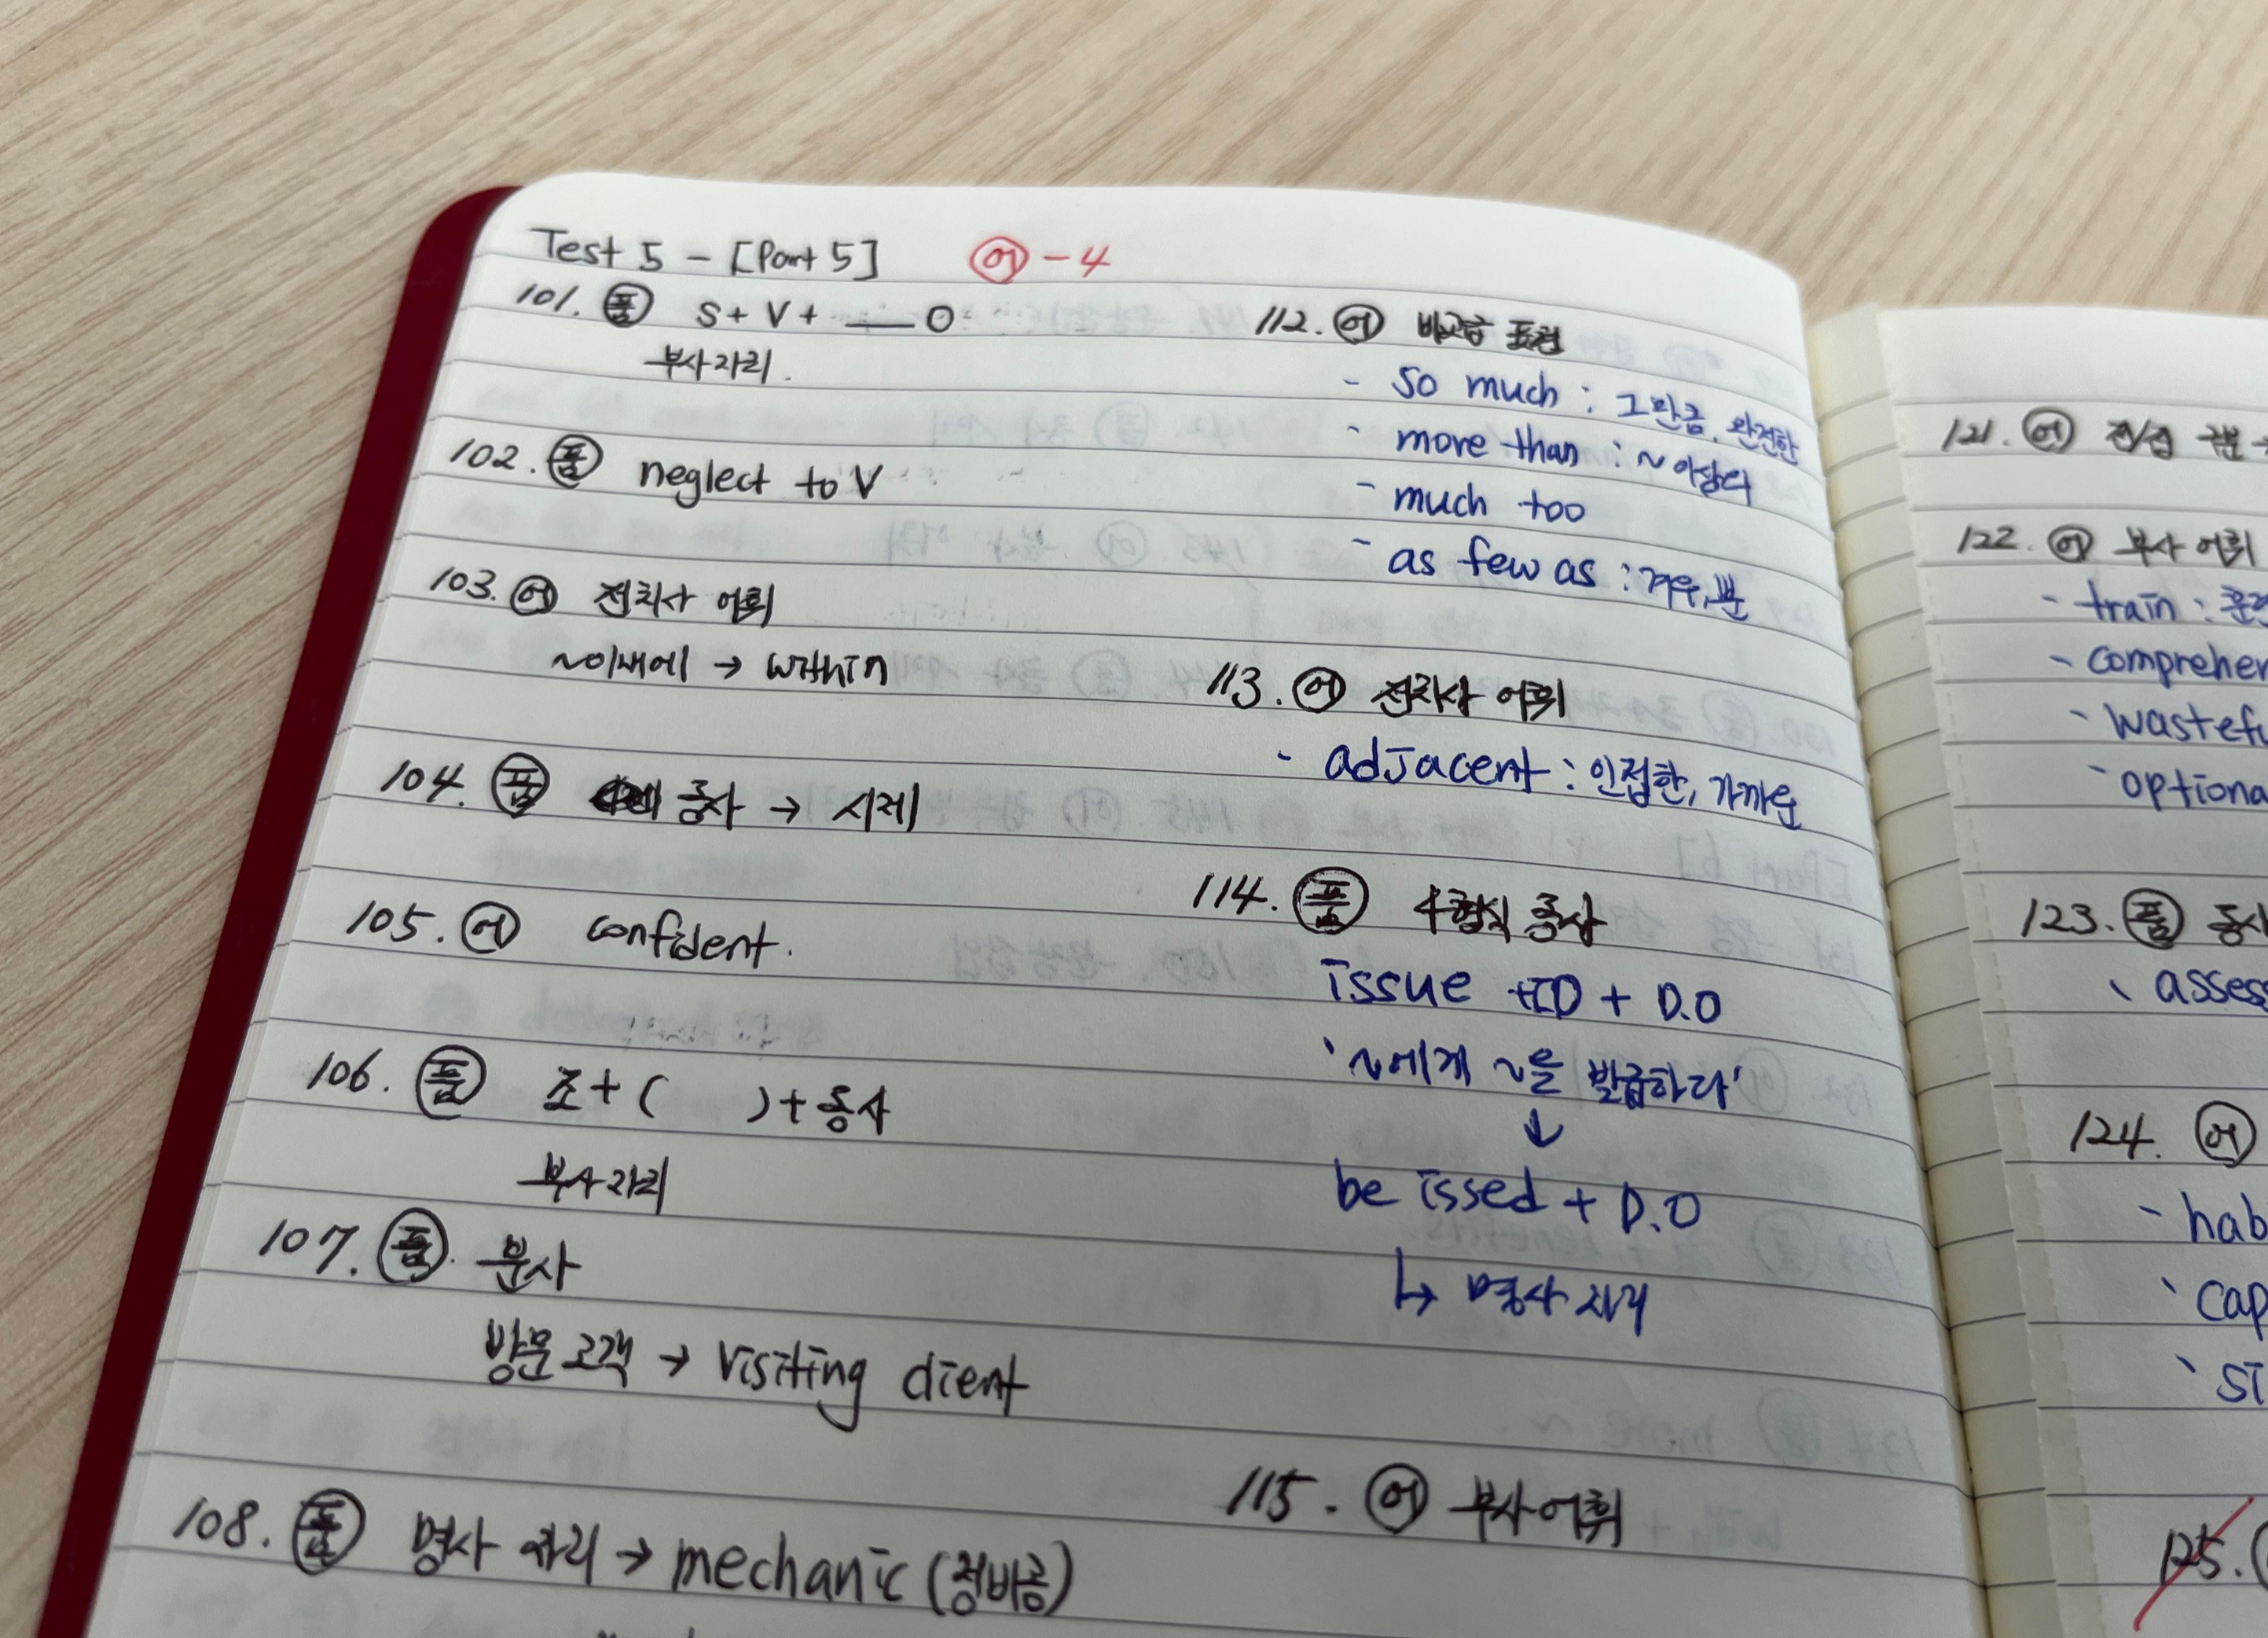 Test 5 - [Part 5] 어 - 4
101. 품 S + V + ___ O
부사자리.
102. 품 neglect to V
103. 어 전치사 어휘
~이내에 → within
104. 품 동사 → 시제
105. 어 confident.
106. 품 조 + ( ) + 동사
부사자리
107. 품. 분사
방문 고객 → visiting client
108. 품 명사 자리 → mechanic (정비공)
112. 어 비교급 표현
- so much : 그만큼, 완전한
- more than : ~ 이상의
- much too
- as few as : 겨우, 뿐
113. 어 전치사 어휘
- adjacent : 인접한, 가까운
114. 품 4형식 동사
issue +ID + D.O
'~에게 ~을 발급하다'
↓
be issed + D.O
↳ 명사 자리
115. 어 부사 어휘
121. 어 전/접 구분
122. 어 부사 어휘
- train :
- comprehen
- wastefu
- optiona
123. 품 동사
- assess
124. 어
- hab
- cap
- si
125.